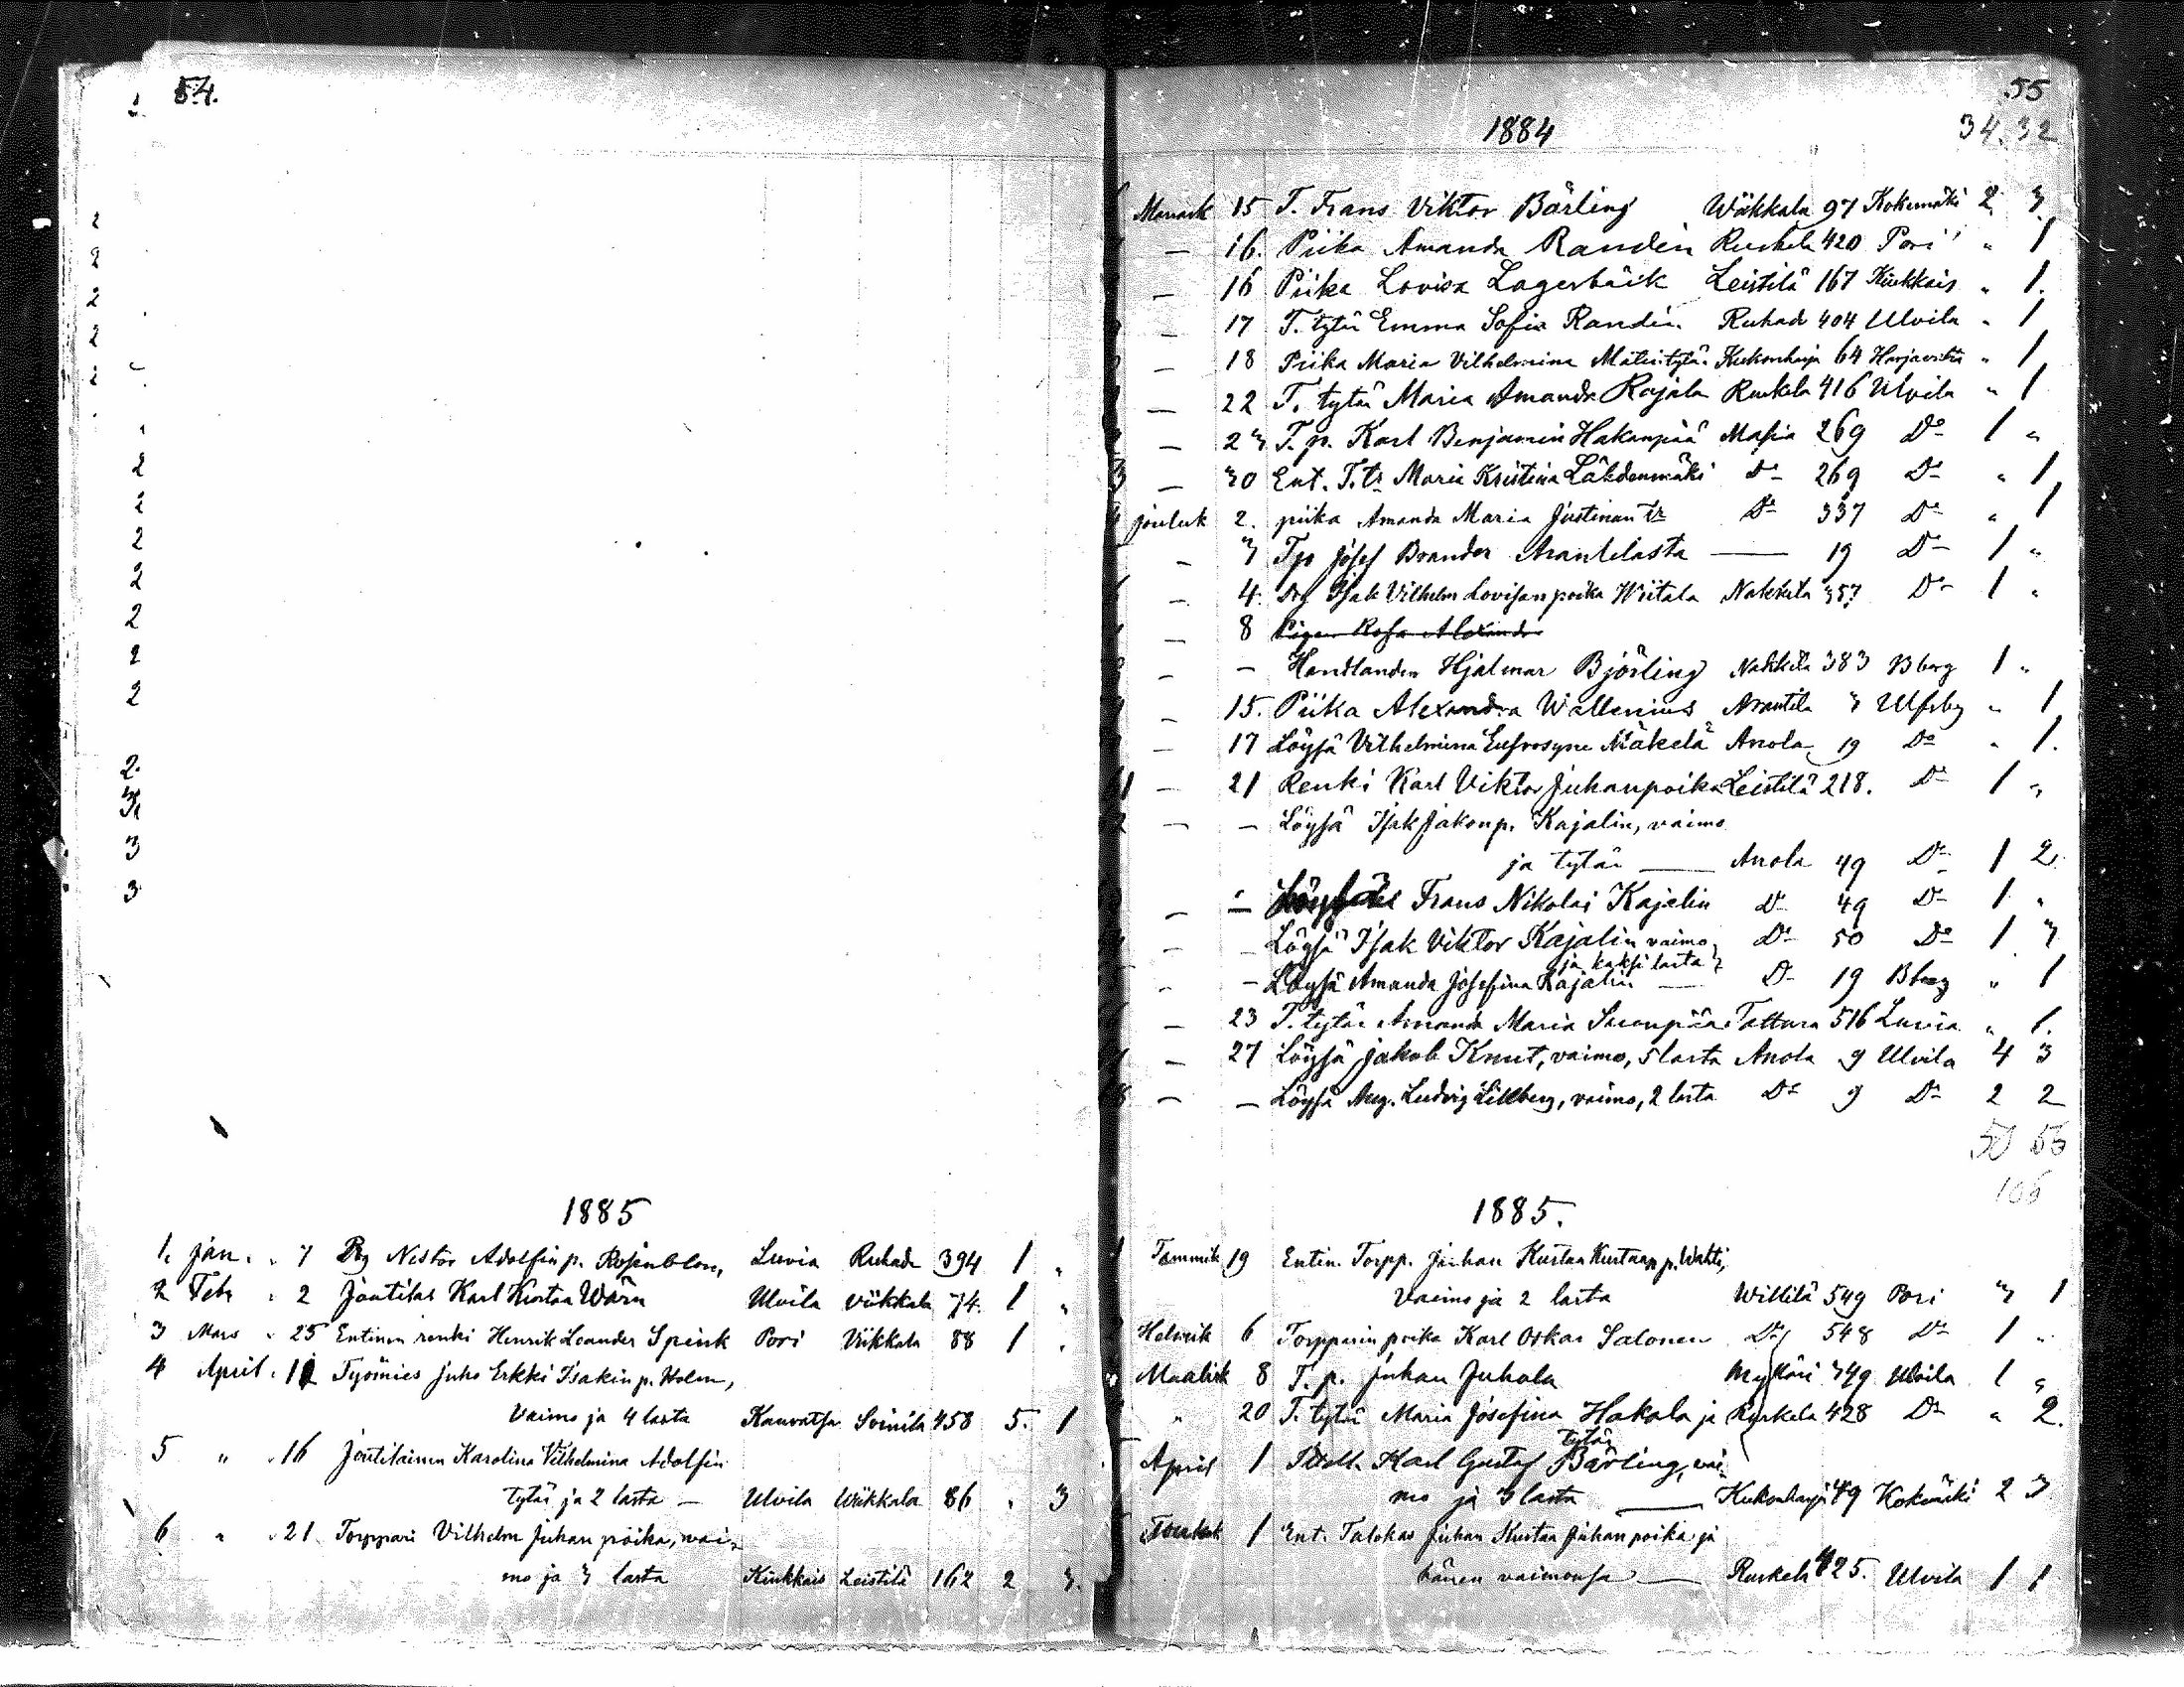 54.
1885
1. Jan. " 7 Drg Nestor Adolfin p. Rosenblom, Luvia Ruhade 394 1 "
2 Febr " 2 Joutilas Karl Kustaa Wärn Ulvila Viikkala 74. 1 "
3 Mars " 25 Entinen renki Henrik Leander Spink Pori Viikkala 88 1 "
4 April " 11 Työmies Juho Erkki Isakin p. Holm,
Vaimo ja 4 lasta Kauvatsa Soinila 458 5. 1
5 " " 16 Joutilainen Karolina Vilhelmina Adolfin
tytär ja 2 lasta — Ulvila Wiikkala 86 " 3
6 " " 21 Torppari Vilhelm Juhan poika, vai-
mo ja 3 lasta Kiukkais Leistilä 162 2 3.
55
1884
34. 32
Marrask 15 T. Frans Viktor Bärling Wiikkala 97 Kokemäki 2 3
— 16. Piika Amanda Randén Ruskela 420 Pori " 1
— 16 Piika Lovisa Lagerbäik Leistilä 167 Kiukkais " 1.
— 17 T. tytär Emma Sofia Randén Ruhade 404 Ulvila " 1
— 18 Piika Maria Vilhelmina Matin tytär Kukonharja 64 Harjavalta " 1
— 22 T. tytär Maria Amanda Rajala Ruskela 416 Ulvila " 1
— 23 T. p. Karl Benjamin Hakanpää Masia 269 Do 1 "
— 30 Ent. T. tr Maria Kristina Lähdenmäki Do 269 Do " 1
Jouluk 2. piika Amanda Maria Justinan tr Do 337 Do " 1
— 3 Tp Josef Brander Arantilasta — 19 Do 1 "
— 4. Drg Isak Vilhelm Lovisan poika Wiitala Nakkila 357 Do 1 "
— 8 Pigan Rosa Alexandra
— — Handlanden Hjalmar Björling Nakkila 383 Bborg 1 "
— 15. Piika Alexandra Wallenius Arantila 3 Ulfsby " 1
— 17 Löysä Vilhelmina Eufrosyne Mäkelä Anola 19 Do " 1.
— 21 Renki Karl Viktor Juhanpoika Leistilä 218. Do 1 "
— — Löysä Isak Jakon p. Kajalin, vaimo
ja tytär — Anola 49 Do 1 2
— — Löysä Frans Nikolai Kajalin Do 49 Do 1 "
— — Löysä Isak Viktor Kajalin vaimo Do 50 Do 1 3
ja kaksi lasta
— — Löysä Amanda Josefina Kajalin — Do 19 Bborg " 1
— 23 T. tytär Amanda Maria Suonpää Tattara 516 Luvia " 1.
— 27 Löysä Jakob Knut, vaimo, 5 lasta Anola 9 Ulvila 4 3
— — Löysä Aug. Ludvig Lillberg, vaimo, 2 lasta Do 9 Do 2 2
106
1885.
Tammik 19 Entin. Torpp. Juhan Kustaa Kustaan p. Wahti,
Vaimo ja 2 lasta Willilä 549 Pori 3 1
Helmik 6 Torpparin poika Karl Oskar Salonen Do 548 Do 1 "
Maalisk 8 T. p. Juhan Juhola 349 Ulvila 1 "
" 20 T. tytär Maria Josefina Hakala ja Ruskela 428 Do " 2.
tytär
April 1 Karl Gustaf Bärling, vai-
mo ja 3 lasta — Kukonharja 49 Kokemäki 2 3
Toukok 1 Ent. Talokas Juhan Kustaa Juhan poika ja
hänen vaimonsa — Ruskela 425. Ulvila 1 1